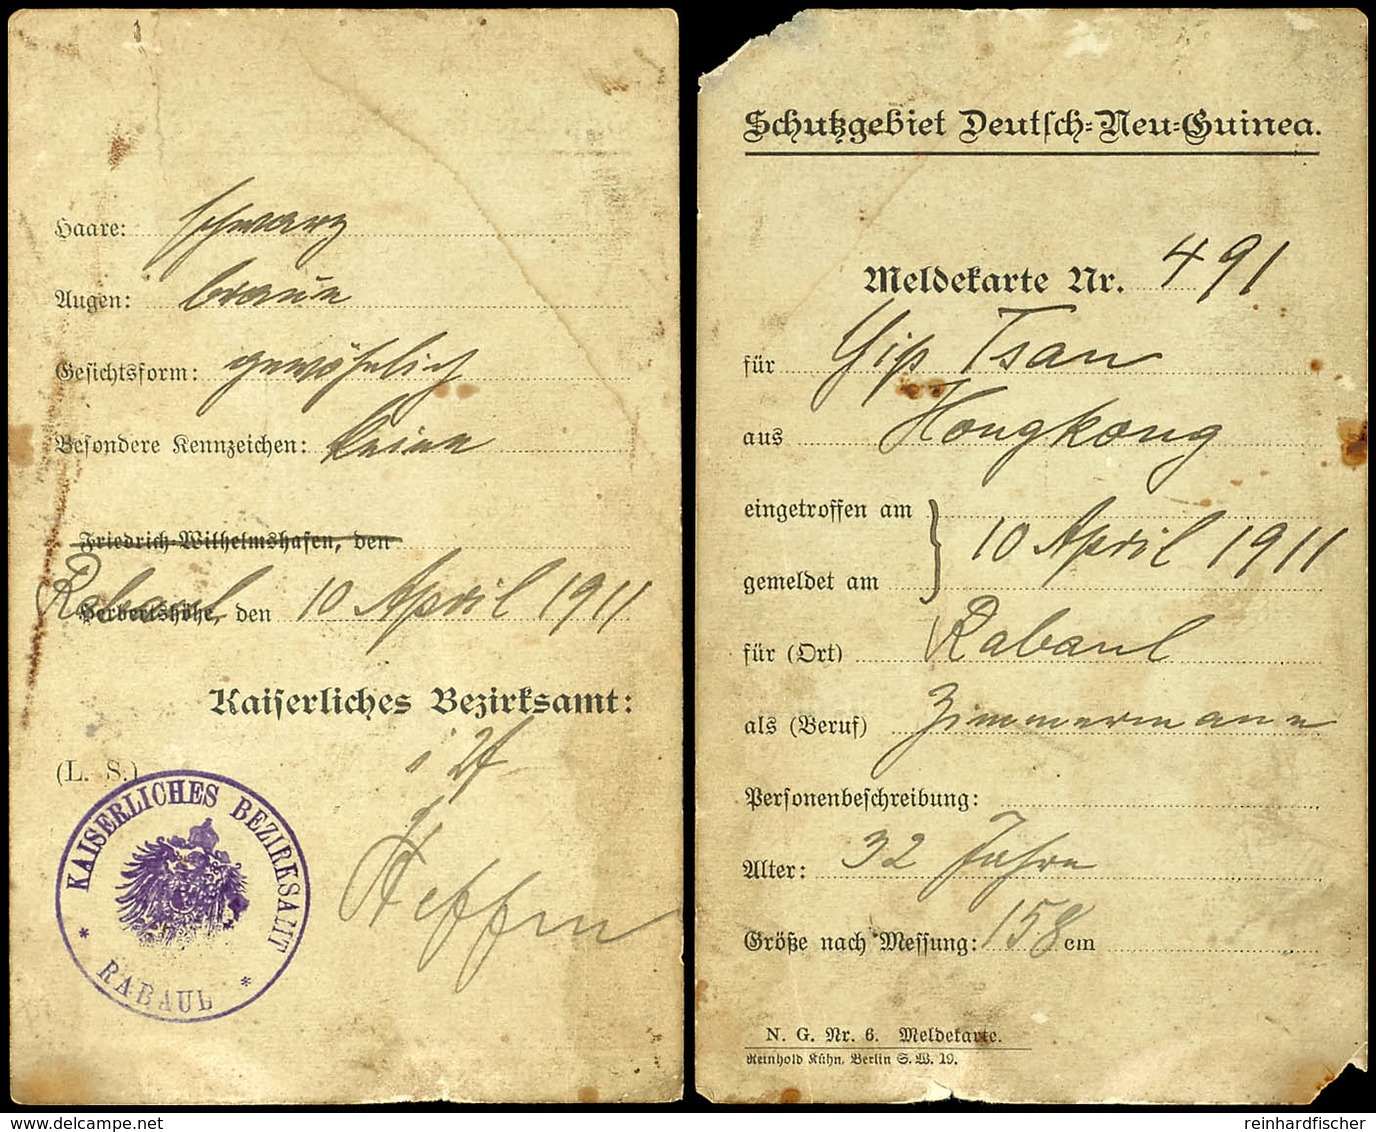 Haare: schwarz
Augen: braun
Gesichtsform: gewöhnlich
Besondere Kennzeichen: keine
Friedrich-Wilhelmshafen, den
Rabaul
Herbertshöhe, den 10 April 1911
Kaiserliches Bezirksamt:
(L. S.)
KAISERLICHES BEZIRKSAMT
* RABAUL *
Schutzgebiet Deutsch-Neu-Guinea.
Meldekarte Nr. 491
für Yip Tsan
aus Hongkong
eingetroffen am
gemeldet am } 10 April 1911
für (Ort) Rabaul
als (Beruf) Zimmermann
Personenbeschreibung:
Alter: 32 Jahre
Größe nach Messung: 158 cm
N. G. Nr. 6. Meldekarte.
Reinhold Kühn, Berlin S. W. 19.
www.delcampe.net
reinhardfischer